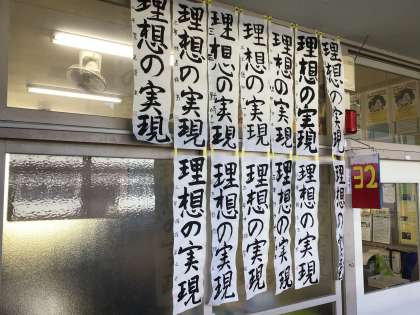 理想の実現
理想の実現
理想の実現
理想の実現
理想の実現
理想の実現
理想の実現
理想の実現
理想の実現
理想の実現
理想の実現
理想の実現
理想の実現
32